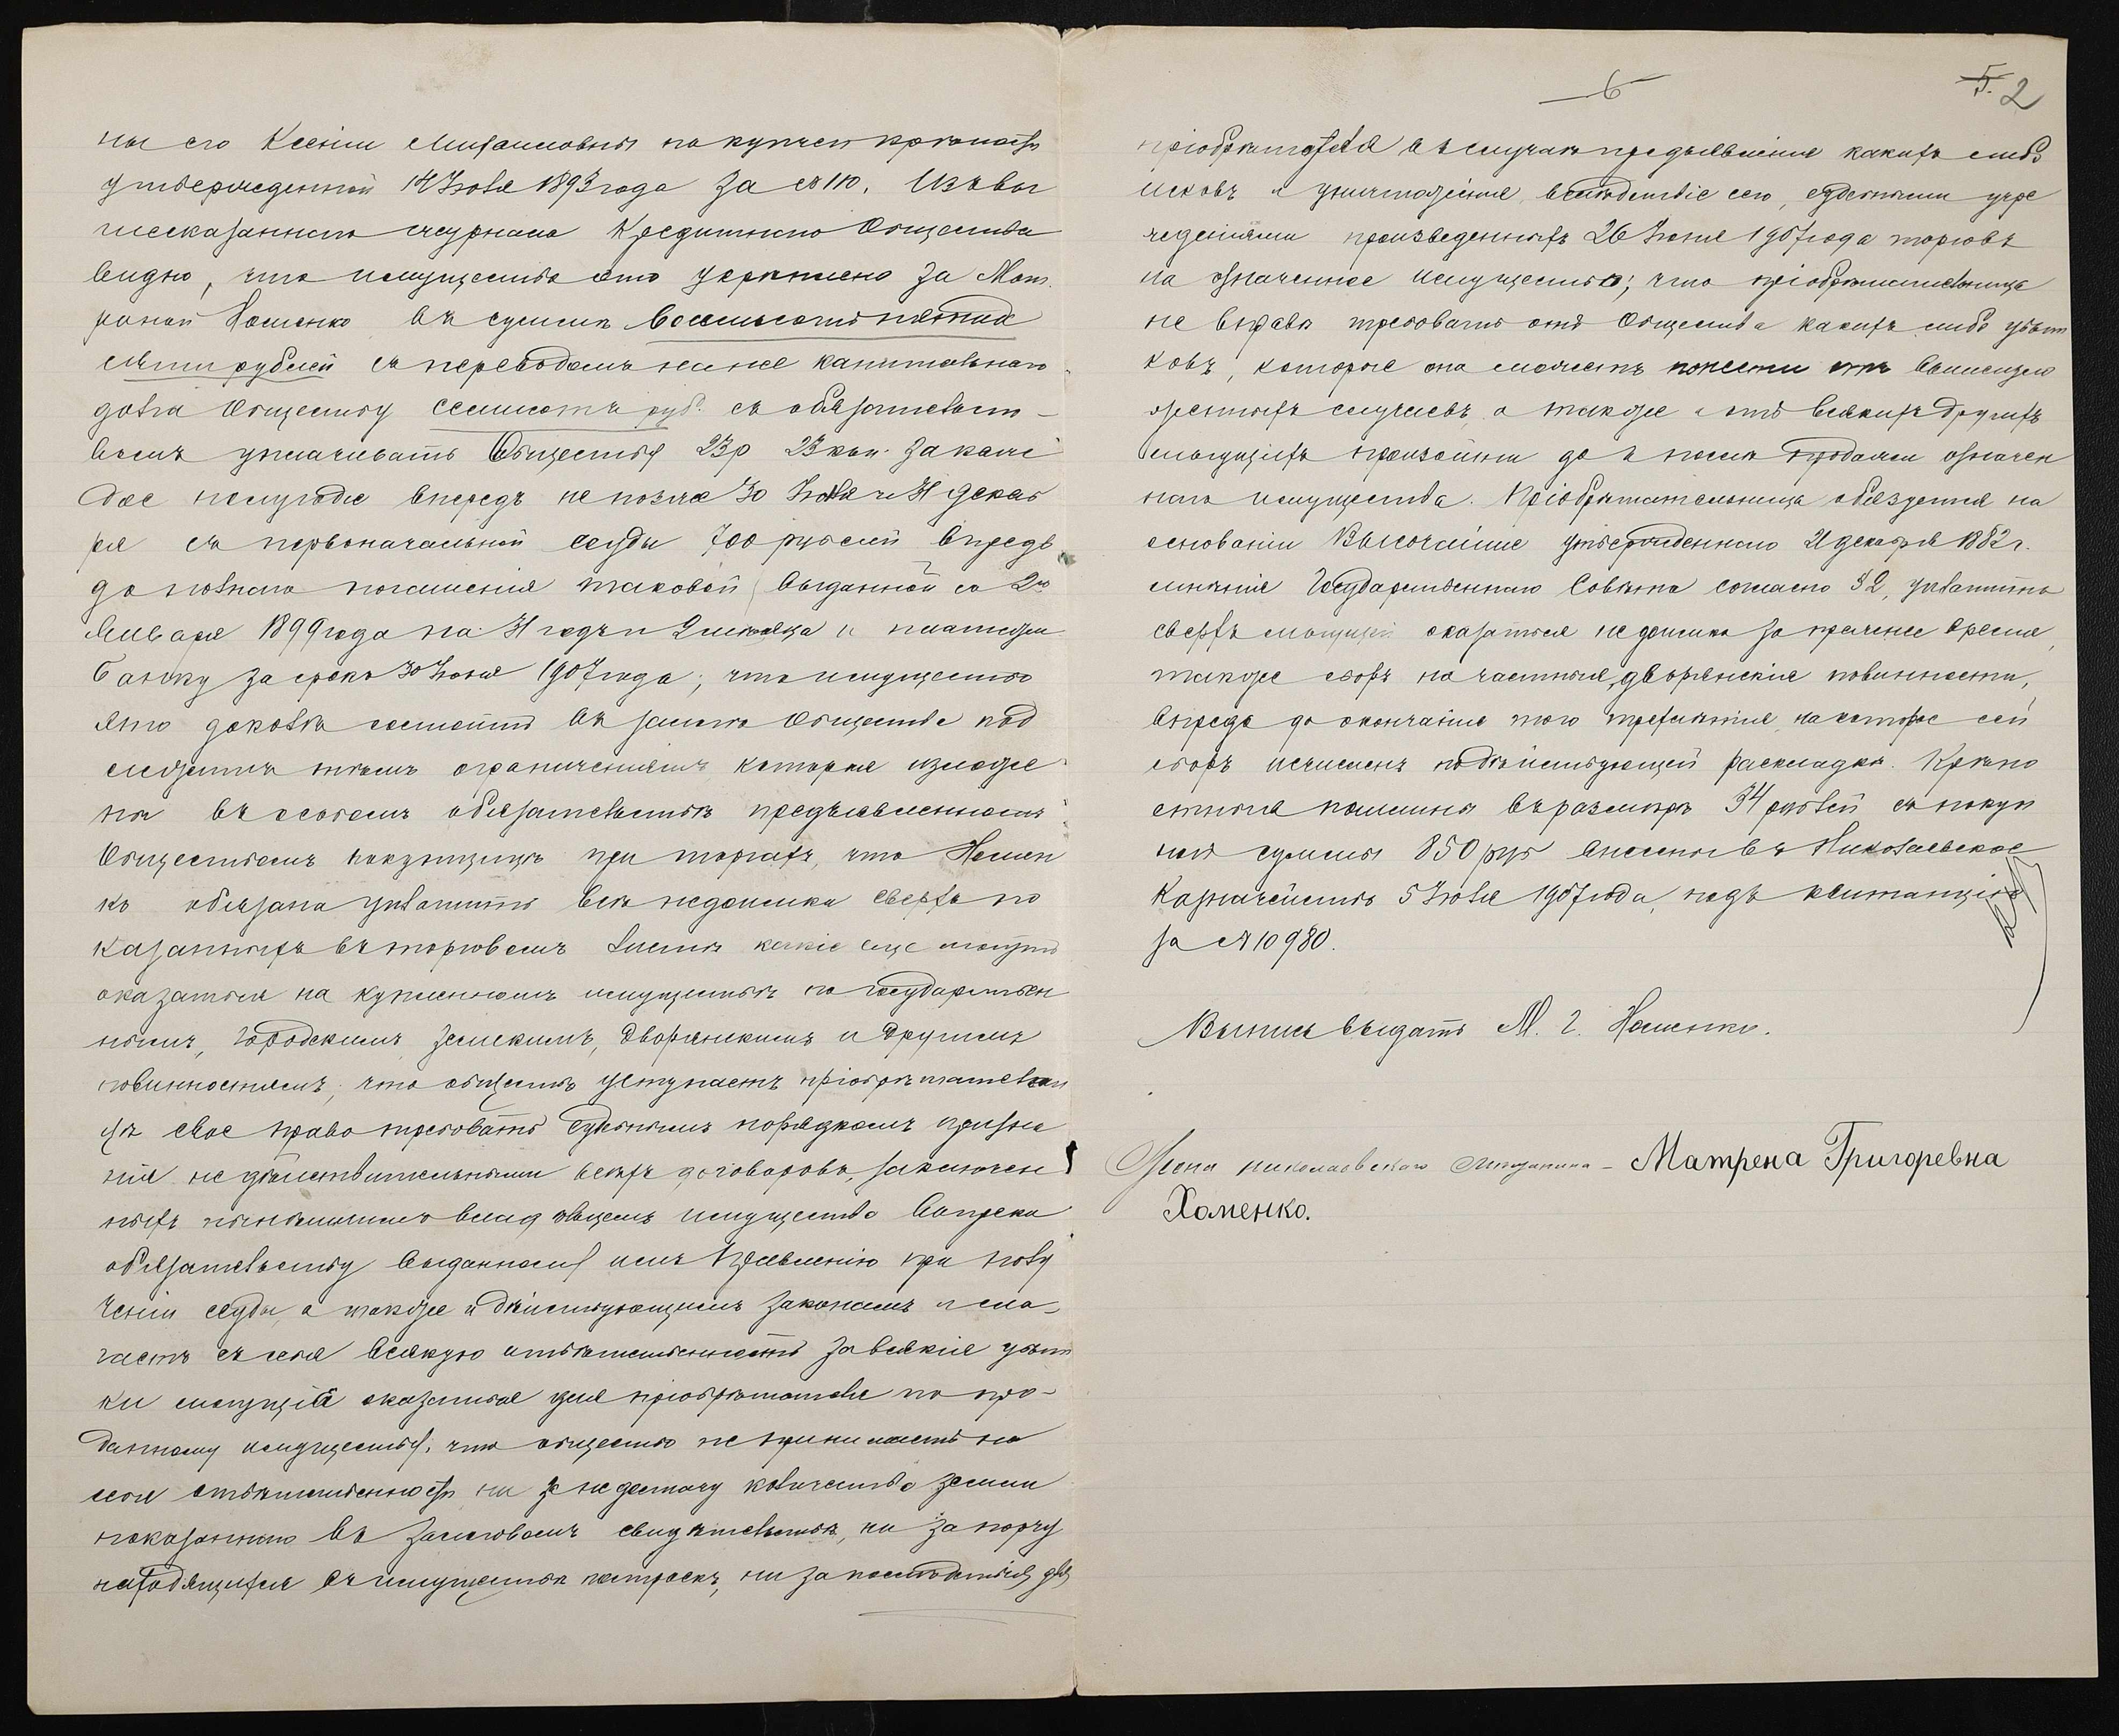 ны его Ксеніи Михайловны по купчей крѣпости
утвержденной 14 Іюля 1893 года за № 110. Изъ вы
шесказаннаго журнала Кредитнаго Общества
видно, что имущество это укрѣплено за Мат
реной Хоменко въ суммѣ восемьсотъ пятьде
сять рублей съ переводомъ на нее капитальнаго
долга Обществу семисотъ руб. съ обязательст-
вомъ уплачивать Обществу 23 р 23 коп. за каж
дое полугодіе впередъ не позже 30 Іюня и 31 декаб
ря съ первоначальной ссуды 700 рублей впредь
до полнаго погашенія таковой (выданной со 2го
Января 1899 года на 31 годъ и 2 мѣсяца и платежи
Банку за срокъ 30 Іюня 1907 года; что имущество
это доколѣ состоитъ въ залогѣ Общества под
лежитъ тѣмъ ограниченіямъ которыя изложе
ны въ особомъ обязательствѣ предъявленномъ
Обществомъ покупщицѣ при торгахъ, что Хомен
ко обязана уплатить всѣ недоимки сверхъ по
казанныхъ въ торговомъ листѣ какіе еще могутъ
оказаться на купленномъ имуществѣ по государствен
нымъ, городскимъ, земскимъ, дворянскимъ и другимъ
повинностямъ; что общество уступаетъ пріобрѣтательни
цѣ свое право требовать судебнымъ порядкомъ призна
нія не дѣйствительными всѣхъ договоровъ, заключен
ныхъ нынѣшнимъ владѣльцемъ имущества вопреки
обязательству выданному имъ Правленію при полу
ченіи ссуды, а также и дѣйствующимъ законамъ и сла-
гаетъ съ себя всякую отвѣтственность за всякіе убыт
ки могущіе оказаться для пріобрѣтателя по про-
данному имуществу, что общество не принимаетъ на
себя отвѣтственность ни за недостачу количества земли
показаннаго въ залоговомъ свидѣтельствѣ, ни за порчу
находящихся въ имуществѣ построекъ, ни за послѣдствія для
6
5. 2
пріобрѣтателя въ случаѣ предъявленія какихъ либо
исковъ и уничтоженія, вслѣдствіе сего, судебными учре
жденіями произведенныхъ 26 Іюня 1907 года торговъ
на означенное имущество; что пріобрѣтательница
не вправѣ требовать отъ Общества какихъ либо убыт
ковъ, которые она можетъ понести отъ вышеизло
женныхъ случаевъ, а также и отъ всякихъ другихъ
могущихъ произойти до и послѣ продажи означен
наго имущества. Пріобрѣтательница обязуется на
основаніи Высочайше утвержденнаго 21 декабря 1882 г.
мнѣнія Государственнаго Совѣта согласно § 2, уплатить
сверхъ могущей оказаться недоимки за прежнее время,
также сборъ на частныя дворянскія повинности,
впредь до окончанія того трехлѣтія, на которое сей
сборъ исчисленъ по дѣйствующей раскладкѣ. Крѣпо
стныя пошлины въ размѣрѣ 34 рублей съ покуп
ной суммы 850 руб внесены въ Николаевское
Казначейство 5 Іюля 1907 года, подъ квитанцію
за № 10980.
Выпись выдать М. Г. Хоменко.
Жена николаевскаго мѣщанина - Матрена Григоревна
Хоменко.